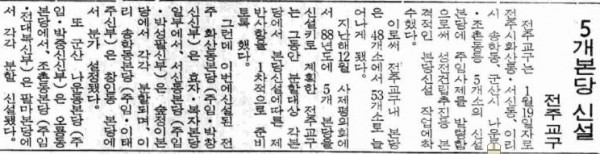 5개본당 신설
전주교구
전주교구는 1월19일자로
전주시화산동·서신동, 이리
시 송학동, 군산시 나운동
·조촌동등 5개소의 신설
본당에 주임사제를 발령함
으로써 성전건립추진등 본
격적인 본당신설 작업에착
수했다.
이로써 전주교구내 본당
은 48개소에서 53개소로 늘
어나게 됐다.
지난해12월 사제평의회에
서 88년도에 5개 본당을
신설키로 계획한 전주교구
는 그동안 분할대상 각본
당에서 본당신설에따른 제
반사항을 1차적으로 준비
토록 했다.
그런데 이번에신설된 전
주 화산동본당(주임·박창
신신부)은 효자·복자본당
일부에서, 서신동본당(주임
·박성팔신부)은 숲정이본
당에서 각각 분할되며, 이
리 송학동본당(주임·이태
주신부)은 창인동 본당에
서 분가 설정됐다.
또 군산 나운동본당(주
임·박중신신부)은 오룡동
본당에서, 조촌동본당(주임
·전대복신부)은 팔마본당에
서 각각 분할 신설됐다.